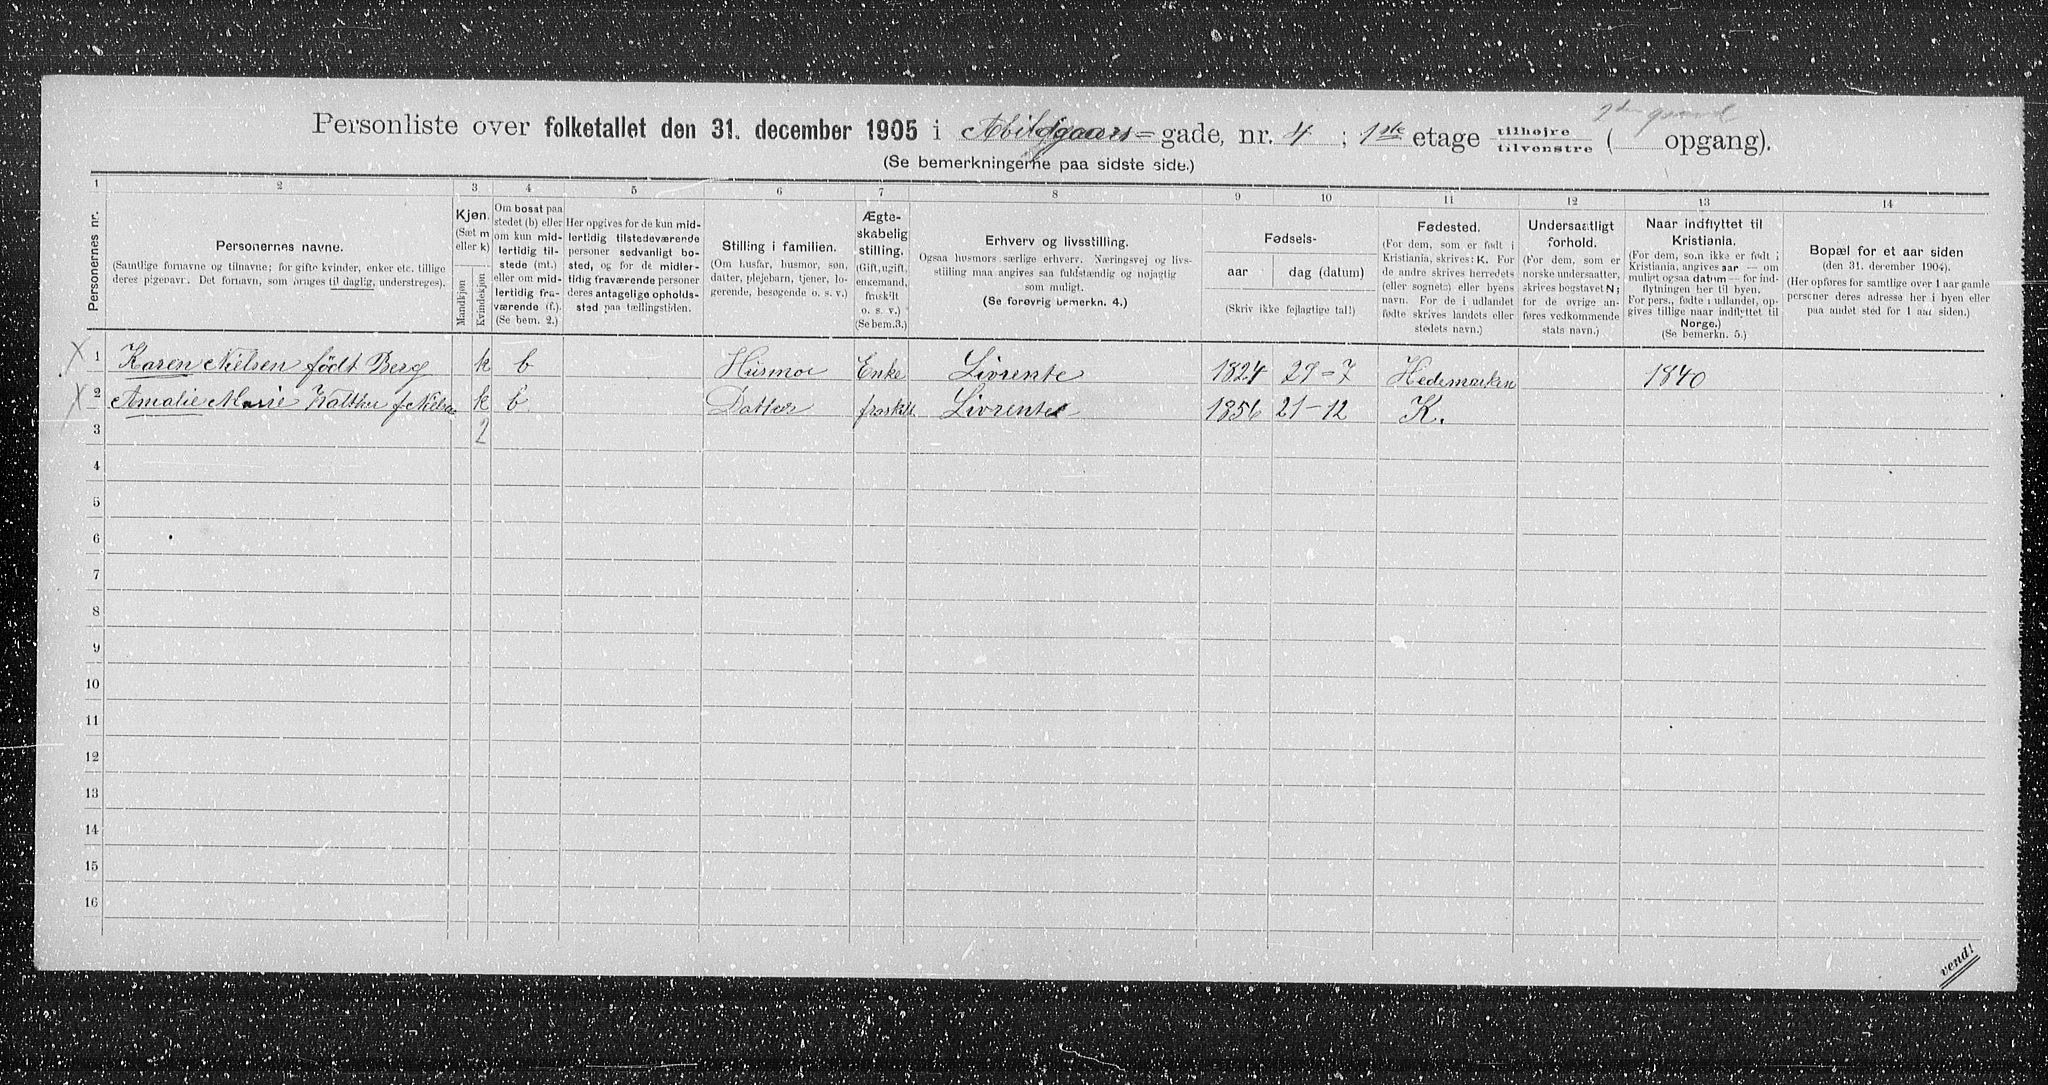 2den gaard
Personliste over folketallet den 31. december 1905 i Abildgaars= gade, nr. 4 ; 1ste etage tilhøjre tilvenstre ( opgang).
(Se bemerkningerne paa sidste side.)
1 2 3 4 5 6 7 8 9 10 11 12 13 14
Personernes nr.
Personernes navne.
(Samtlige fornavne og tilnavne; for gifte kvinder, enker etc. tillige
deres pigenavr. Det fornavn, som bruges til daglig, understreges).
Kjøn.
(Sæt m
eller k)
Mandkjøn
Kvindekjøn
Om bosat paa
stedet (b) eller
om kun mid-
lertidig til-
stede (mt.)
eller om mid-
lertidig fra-
værende (f.)
(Se bem. 2.)
Her opgives for de kun mid-
lertidig tilstedeværende
personer sedvanlig bo-
sted, og for de midler-
tidig fraværende personer
deres antagelige opholds-
sted paa tællingstiden.
Stilling i familien.
(Om husfar, husmor, søn,
datter, plejebarn, tjener, lo-
gerende, besøgende o. s. v.)
Ægte-
skabelig
stilling.
(Gift, ugift,
enkemand,
fraskilt
o. s. v.)
(Se bem. 3.)
Erhverv og livsstilling.
Ogsaa husmors særlige erhverv. Næringsvej og livs-
stilling maa angives saa fuldstændig og nøjagtig
som muligt.
(Se forøvrig bemerkn. 4.)
Fødsels-
aar
dag (datum)
(Skriv ikke fejlagtige tal!)
Fødested.
(For dem, som er født i
Kristiania, skrives: K. For
de andre skrives herredets
(eller sognets) eller byens
navn. For de i udlandet
fødte skrives landets eller
stedets navn.)
Undersaatligt
forhold.
(For dem, som er
norske undersaatter,
skrives bogstavet N;
for de øvrige an-
føres vedkommende
stats navn.)
Naar indflyttet til
Kristiania.
(For dem, som ikke er født i
Kristiania, angives aar — om
muligt ogsaa datum — for ind-
flytningen her til byen.
For pers., fødte i udlandet, op-
gives tillige naar indflyttet til
Norge.)
(Se bemerkn. 5.)
Bopæl for et aar siden
(den 31. december 1904).
(Her opføres for samtlige over 1 aar gamle
personer deres adresse her i byen eller
paa andet sted for 1 aar siden.)
X 1 Karen Nielsen født Berg k b Husmor Enke Livrente 1824 29-7 Hedemarken 1840
X 2 Amalie Marie f. Nielsen k b Datter fraskilt Livrente 1856 21-12 K.
3 2
4
5
6
7
8
9
10
11
12
13
14
15
16
vend!